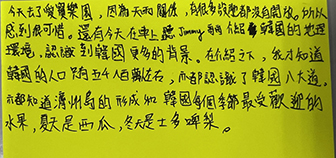 今天去了愛寶樂園，因為天雨關係，有很多設施都沒有開放，所以
感到很可惜。還有今天在車上聽Jimmy哥哥介紹韓國的地理
環境，認識到韓國更多的背景。在介紹之下，我才知道
韓國的人口只有五千八百萬左右，亦都認識了韓國八大道，
亦都知道濟州島的形成和韓國每個季節最受歡迎的
水果，夏天是西瓜，冬天是士多啤梨。